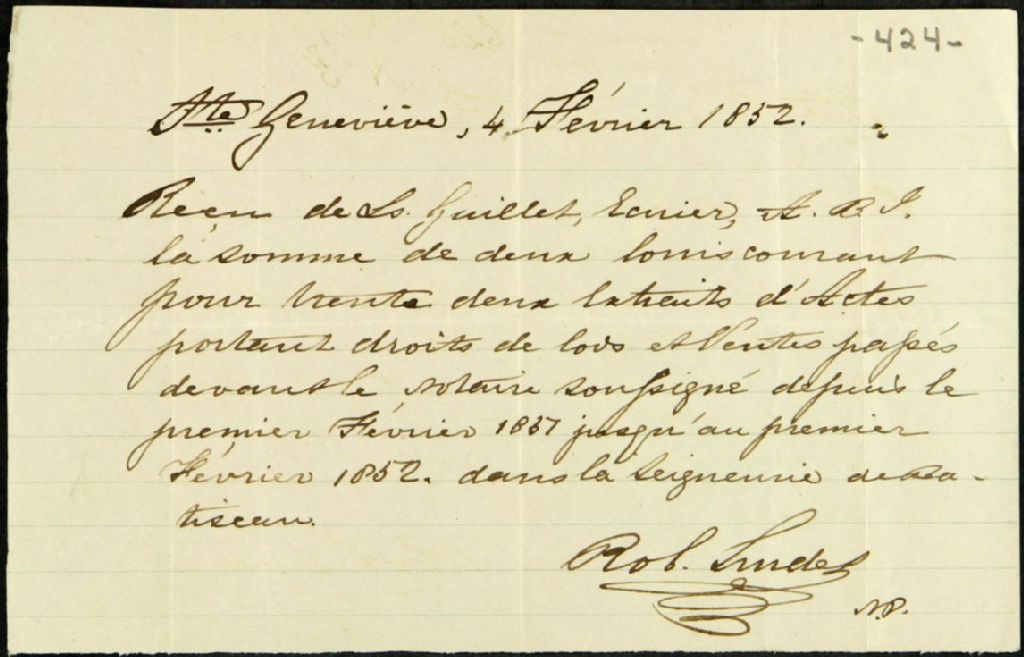 -424-
Ste Geneviève, 4 Février 1852.
Reçu de Ls. Guillet, Ecuier, A. B. J.
la somme de deux louis courant
pour trente deux Extraits d'Actes
portant droits de lods et Ventes passés
devant le Notaire soussigné depuis le
premier Février 1851 jusqu'au premier
Février 1852. dans la Seigneurie de Ba-
tiscan.
Rob.
N.P.